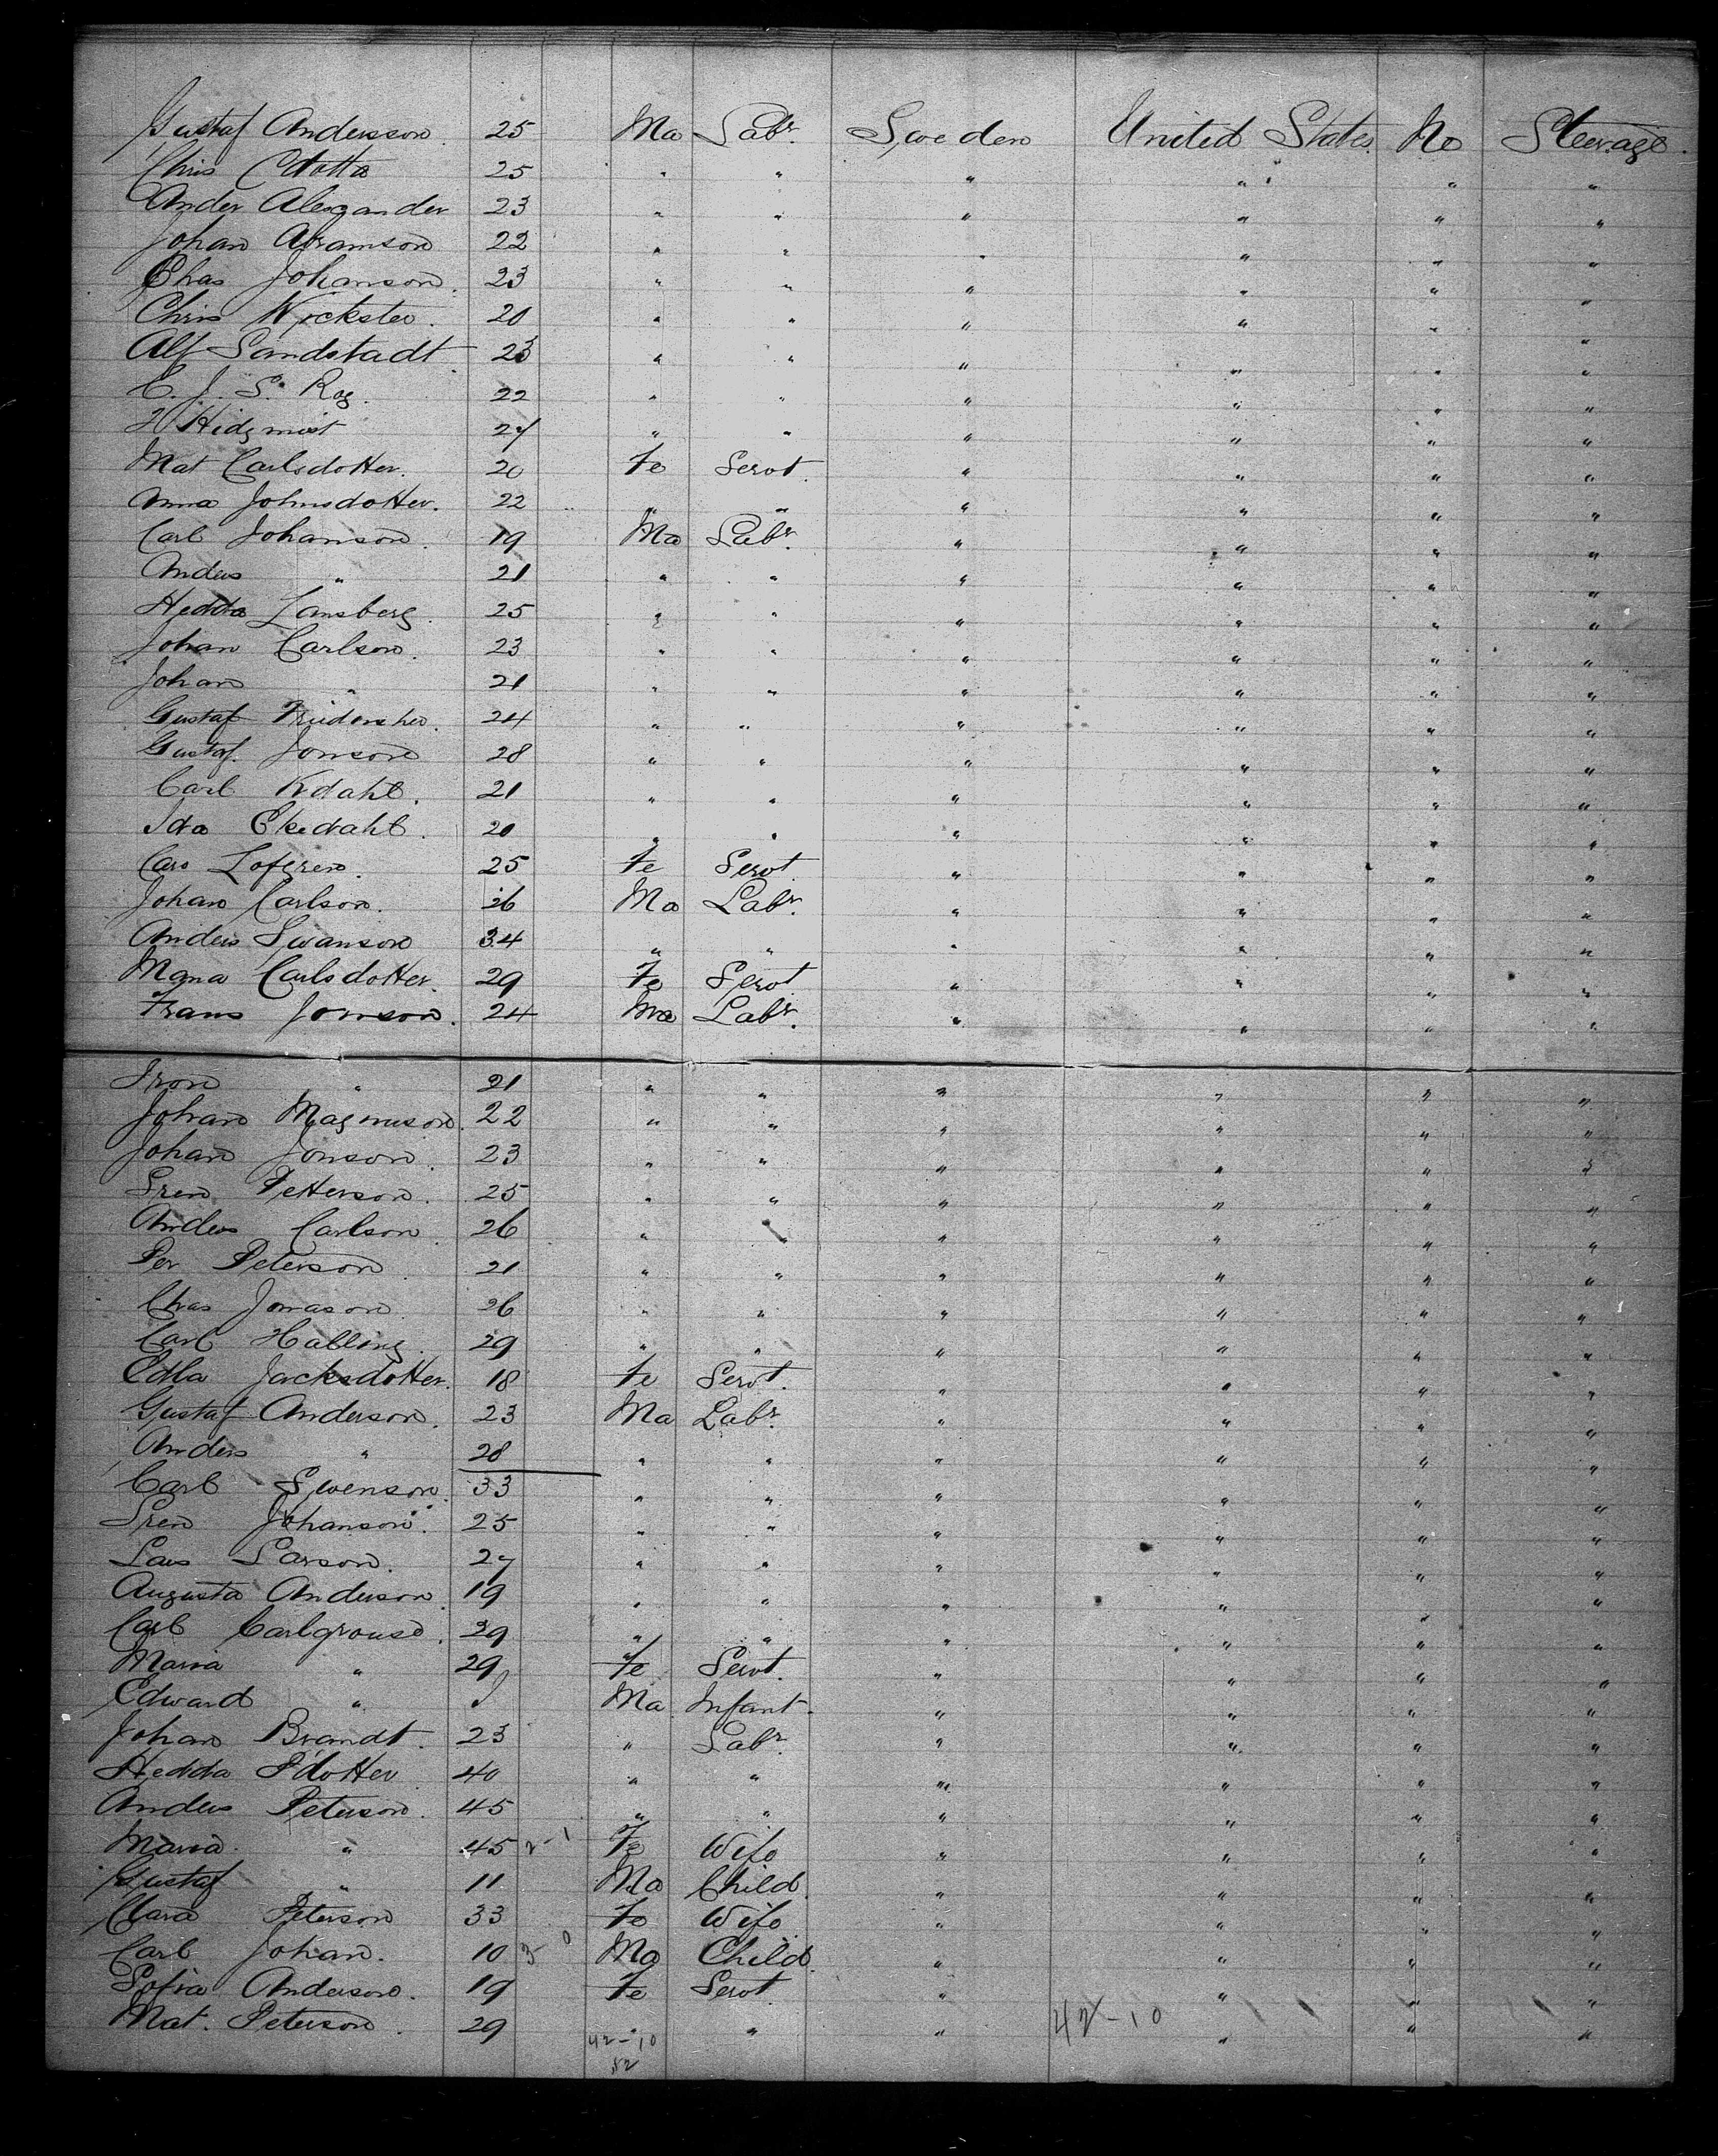 Gustaf Andersson. 25 Ma Labr. Sweden United States. No Steerage.
Chris Cdotta 25 " " " " " "
Ander Alexander 23 " " " " " "
Johan Abramson 22 " " " " " "
Chas Johanson. 23 " " " " " "
Chris Wickster. 20 " " " " " "
Alf Sandstadt 23 " " " " " "
C. J. S. Rog. 22 " " " " " "
H 27 " " " " " "
Mat Carlsdotter. 20 Fe Servt. " " " "
Anna Johnsdotter. 22 " " " " " "
Carl Johanson. 19 Ma Labr. " " " "
Anders " 21 " " " " " "
Hedda Lansberg. 25 " " " " " "
Johan Carlson. 23 " " " " " "
Johan " 21 " " " " " "
Gustaf 24 " " " " " "
Gustaf. Jonson 28 " " " " " "
Carl Kdahl. 21 " " " " " "
Ida Ekedahl. 20 " " " " " "
Caro Lofgren. 25 Fe Servt. " " " "
Johan Carlson. 26 Ma Labr. " " " "
Anders Swanson 34 " " " " " "
Mana Carlsdotter. 29 Fe Servt " " " "
Frans Jonson. 24 Ma Labr. " " " "
Iron " 21 " " " " " "
Johan Magnuson. 22 " " " " " "
Johan Jonson. 23 " " " " " "
Sven Petterson. 25 " " " " " "
Anders Carlson. 26 " " " " " "
Per Peterson. 21 " " " " " "
Chas Jonason 26 " " " " " "
Carl Halling. 29 " " " " " "
Edla Jacksdotter. 18 Fe Servt. " " " "
Gustaf Anderson. 23 Ma Labr. " " " "
Anders " 28 " " " " " "
Carl Swenson. 33 " " " " " "
Sven Johanson. 25 " " " " " "
Lars Larson. 27 " " " " " "
Augusta Anderson. 19 " " " " " "
Carl Carlgrouse. 29 " " " " " "
Maria " 29 Fe Servt. " " " "
Edward " Ma Infant. " " " "
Johan Brandt. 23 " Labr. " " " "
Hedda Pdotter 40 " " " " " "
Anders Peterson. 45 " " " " " "
Maria. " 45 2-1 Fe Wife " " " "
Gustaf " 11 Ma Child. " " " "
Clara Peterson 33 Fe Wife " " " "
Carl Johan. 10 3-0 Ma Child. " " " "
Sofia Anderson. 19 Fe Servt. " " " "
Mat. Peterson. 29 " " " " " "
42-10 42-10
52